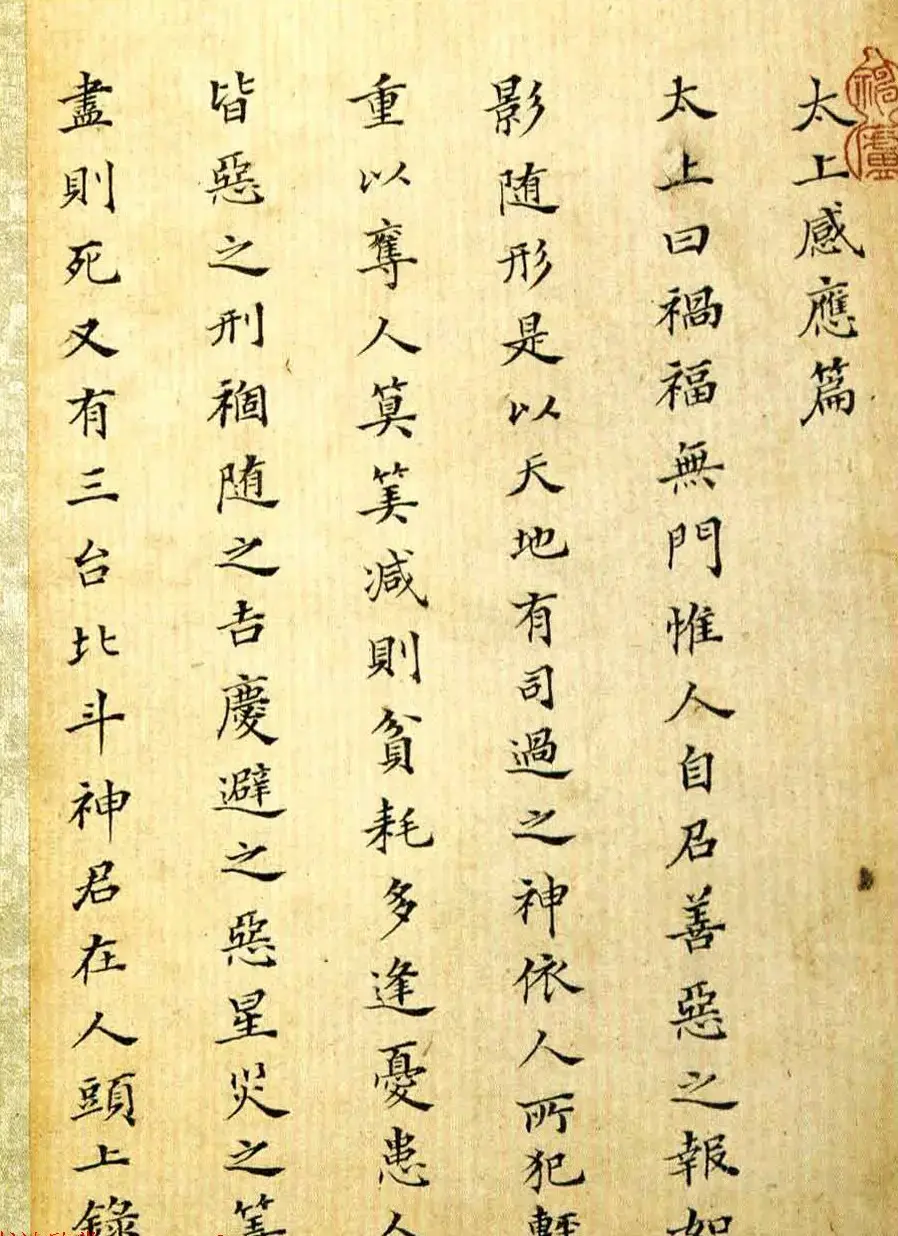 太上感應篇
太上曰禍福無門惟人自召善惡之報如
影随形是以天地有司過之神依人所犯輕
重以奪人筭筭減則貧耗多逢憂患人
皆惡之刑禍随之吉慶避之惡星災之筭
盡則死又有三台北斗神君在人頭上錄